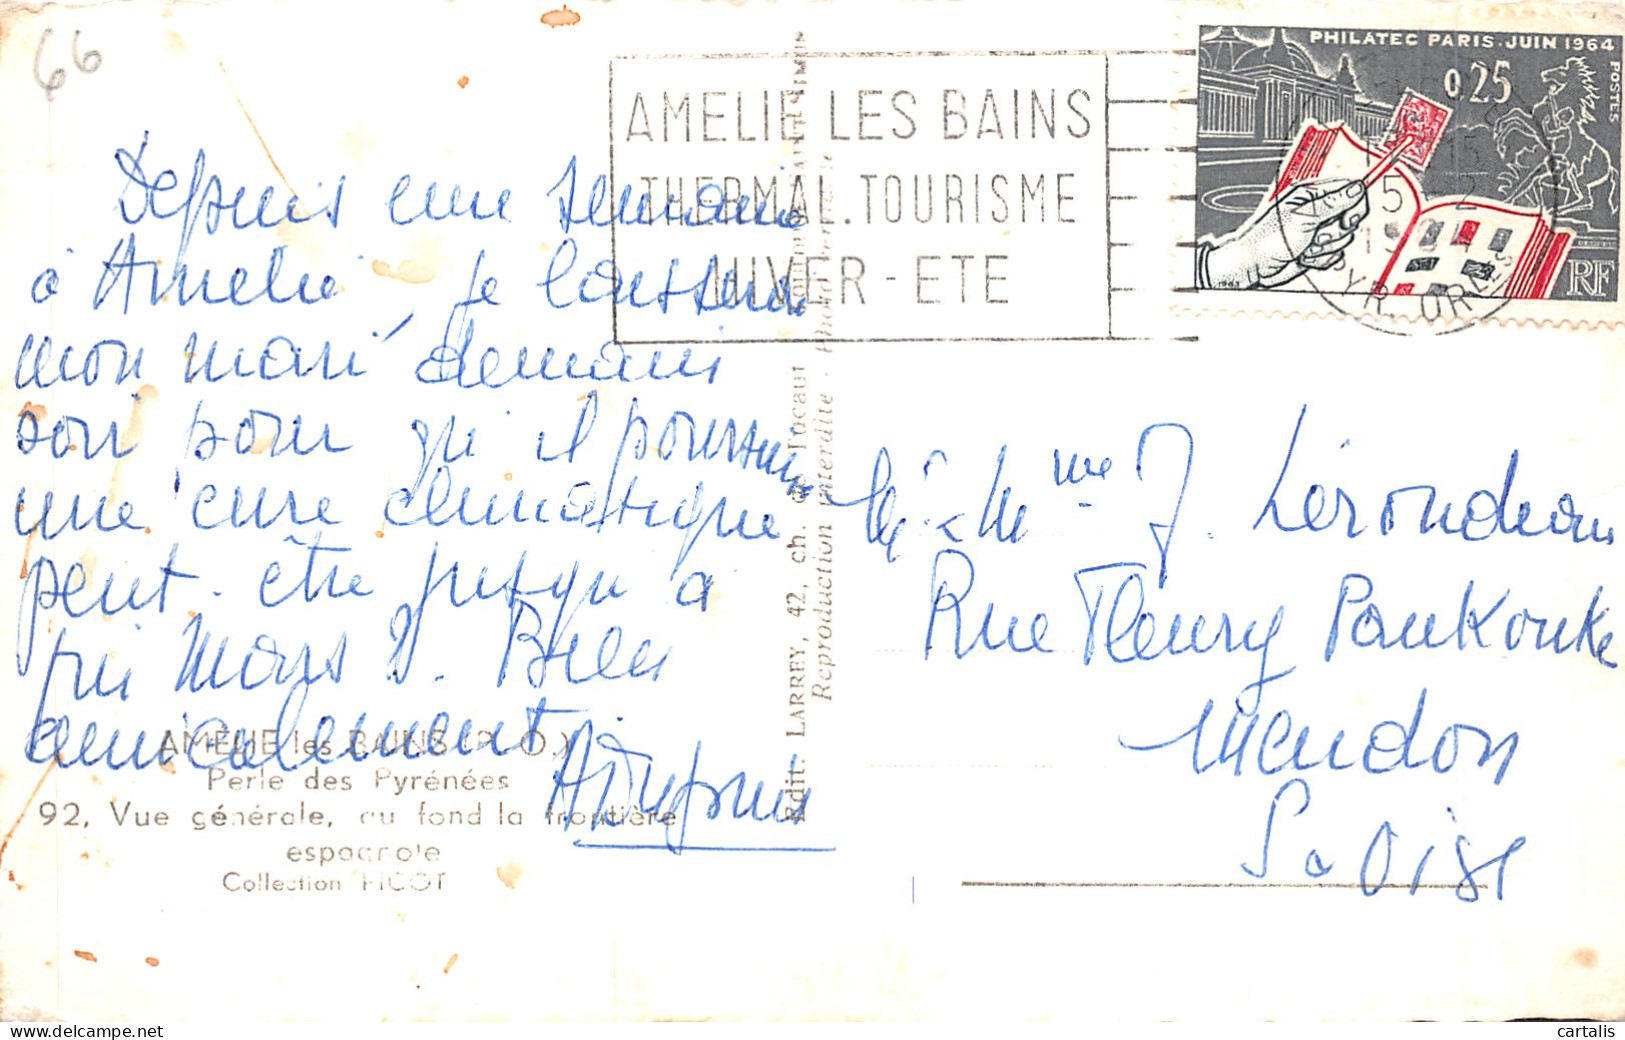 66
Depuis une semaine
à Amélie, je laisse
mon mari demain
soir pour qu'il poursuive
une cure climatique
peut-être jusqu'à
fin Mars. Bien
amicalement
AMELIE les BAINS (P.-O.)
Perle des Pyrénées
92, Vue générale, au fond la frontière
espagnole
Collection PICOT
Edit. LARREY, 42, ch. de Tocaut
Reproduction interdite
AMELIE LES BAINS
THERMAL.TOURISME
HIVER - ETE
PHILATEC PARIS.JUIN 1964
0,25
POSTES
RF
15
5 - 2
PYR. ORLES
Mr & Mme J. Lérondeau
Rue Fleury Pankouke
Meudon
S & Oise
cartalis